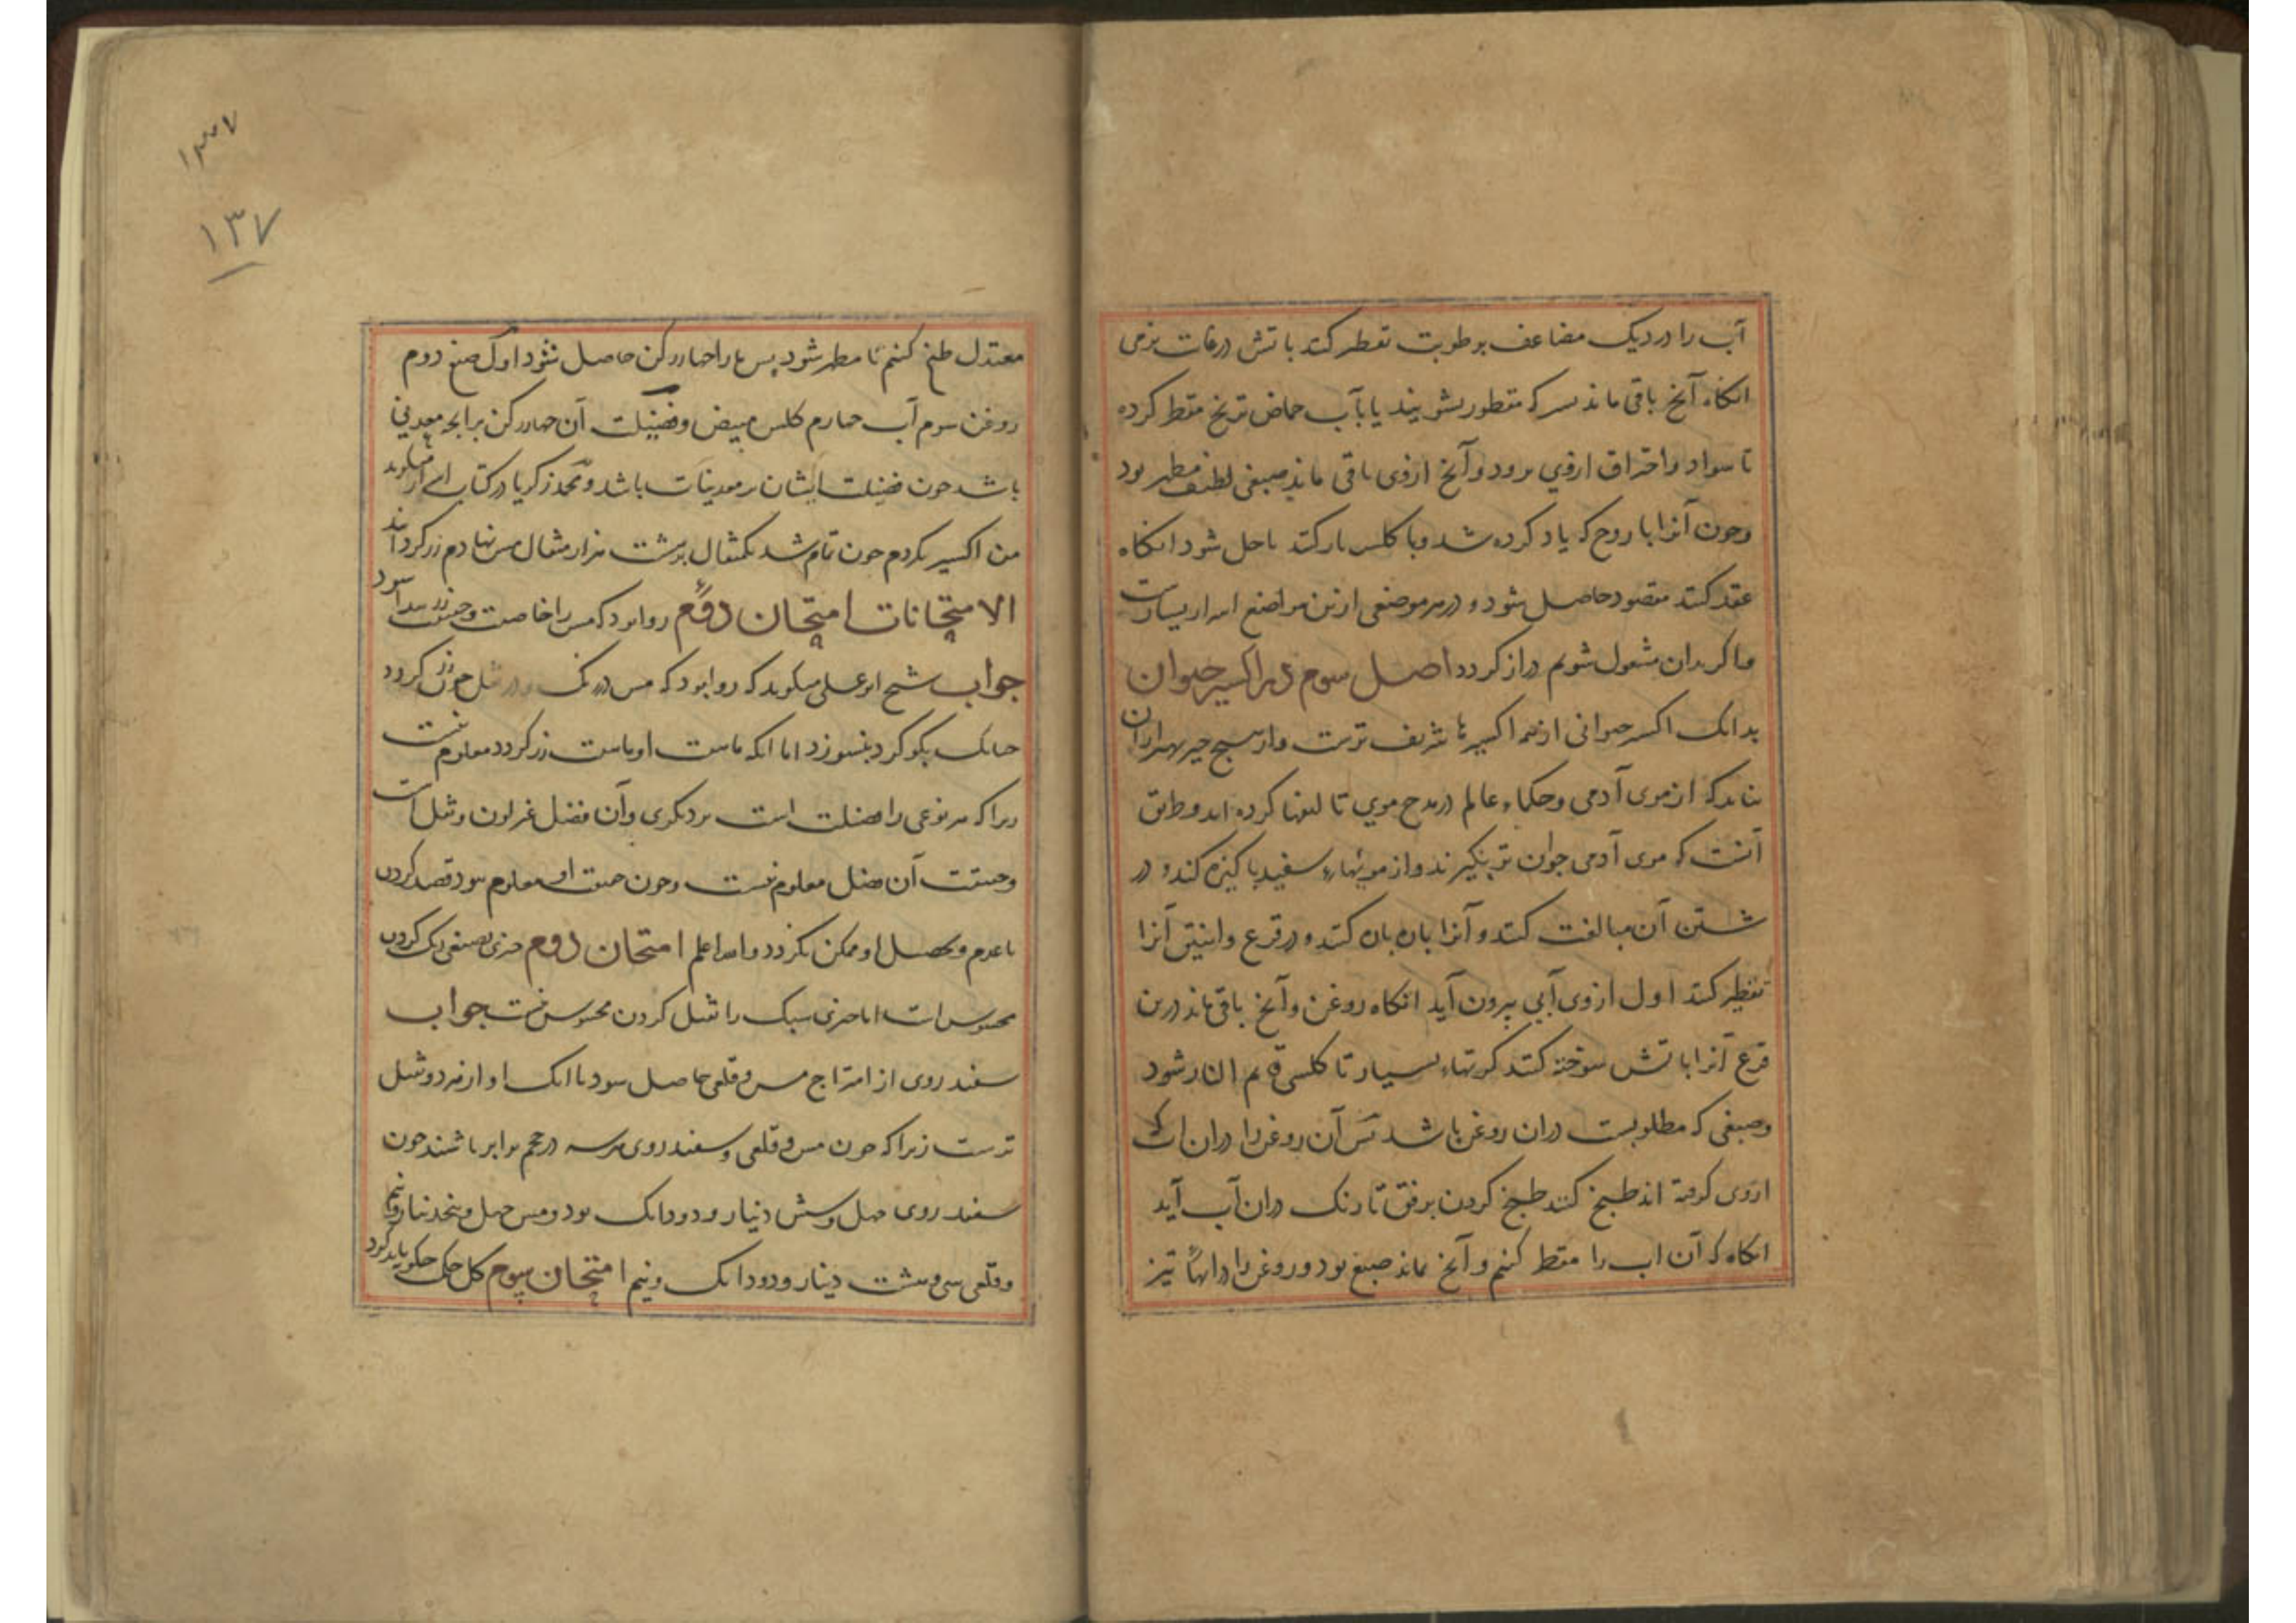 آب را در دیک مضاعف برطوبت تقطیر کند باتش درغات نرمی
انکاه آنخ باقی ماند بسرکه مقطور بشویند یا بآب حماض ترنج مقطر کرده
تا سواد و احتراق ازوی برود و آنخ ازوی باقی ماند صبغی لطیف مطهر بود
وجون آنرا با روح که یاد کرده شد وبا کلس یار کند تا حل شود انکاه
عقد کند مقصود حاصل شود و در هر موضعی ازین مواضع اسرار بسیارست
ما کر بدان مشغول شویم دراز کردد اصل سوم در اکسیر حیوان
بدانک اکسیر حیوانی از همه اکسیرها شریف ترست واز هیج جیز بهتر ازان
نیاید که از موی آدمی وحکماء عالم در مدح موی تالیفها کرده اند وطریق
آنست که موی آدمی جوان تر بکیرند واز مویهاء سفید پاکیزه کند و در
شستن آن مبالغت کند و آنرا باره باره کند و در قرع وانبیق آنرا
تقطیر کند اول ازوی آبی بیرون آید انکاه روغن وآنخ باقی ماند درین
قرع آنرا باتش سوخته کند کرتهاء بسیار تا کلسی قایم النار شود
وصبغی که مطلوبست دران روغن باشد پس آن روغن را دران آب که
ازوی کرفته اند طبخ کند طبخ کردن برفق تا رنک دران آب آید
انکاه که آن اب را مقطر کنیم و آنخ بماند صبغ بود و روغن را در آبهاء تیز
۱۳۷
۱۳۷
معتدل طبخ کنیم تا مطهر شود پس مارا جهار رکن حاصل شود اول صبغ دوم
روغن سوم آب جهارم کلس مبیض وفضیلت آن جهار رکن برانجه معدنی
باشد جون فضیلت ایشان بر معدنیات باشد و محمد زکریا در کتاب اسرار میکوید
من اکسیر بکردم جون تمام شد یکمثقال برشست هزار مثقال مس نهادم زر کردانید
الامتحانات امتحان اول روا بود که مس را خاصیت وجون زر بیدا شود
جواب شیخ ابو علی میکوید که روا بود که مس در رنک و در ثقل جون زر کردد
جنانک بکوکرد بنسوزد اما انکه ماهیت او ماهیت زر کردد معلوم نیست
زیرا که هر نوعی را فضلیست است بر دیکری وآن فضل غیر لون وثقل است
وحقیقت آن فضل معلوم نیست وجون حقیقت او معلوم نبود قصد کردن
باعدم وتحصیل او ممکن نکردد والله اعلم امتحان دوم جیزی بصبغی رنک کردن
محسوس است اما جیزی سبک را ثقیل کردن محسوس نیست جواب
سفید روی از امتزاج مس و قلعی حاصل شود با انک او از هر دو ثقیل
ترست زیرا که جون مس و قلعی وسفید روی هر سه در حجم برابر باشند جون
سفید روی جهل وشش دینار و دو دانک بود و مس جهل وپنج دینار و نیم
وقلعی سی وهشت دینار ودو دانک ونیم امتحان سوم کل حکمت جکونه باید کرد